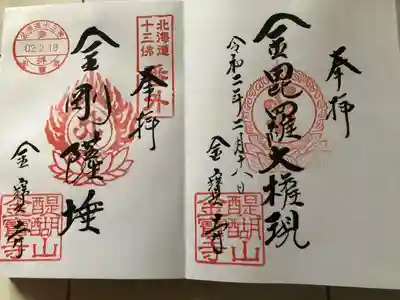 奉拝
金毘羅大権現
令和二年二月十八日
金寶寺
醍醐山
金寶寺
北海道
十三佛
番外
奉拝
金剛薩埵
02.2.18
金寶寺
醍醐山
金寶寺